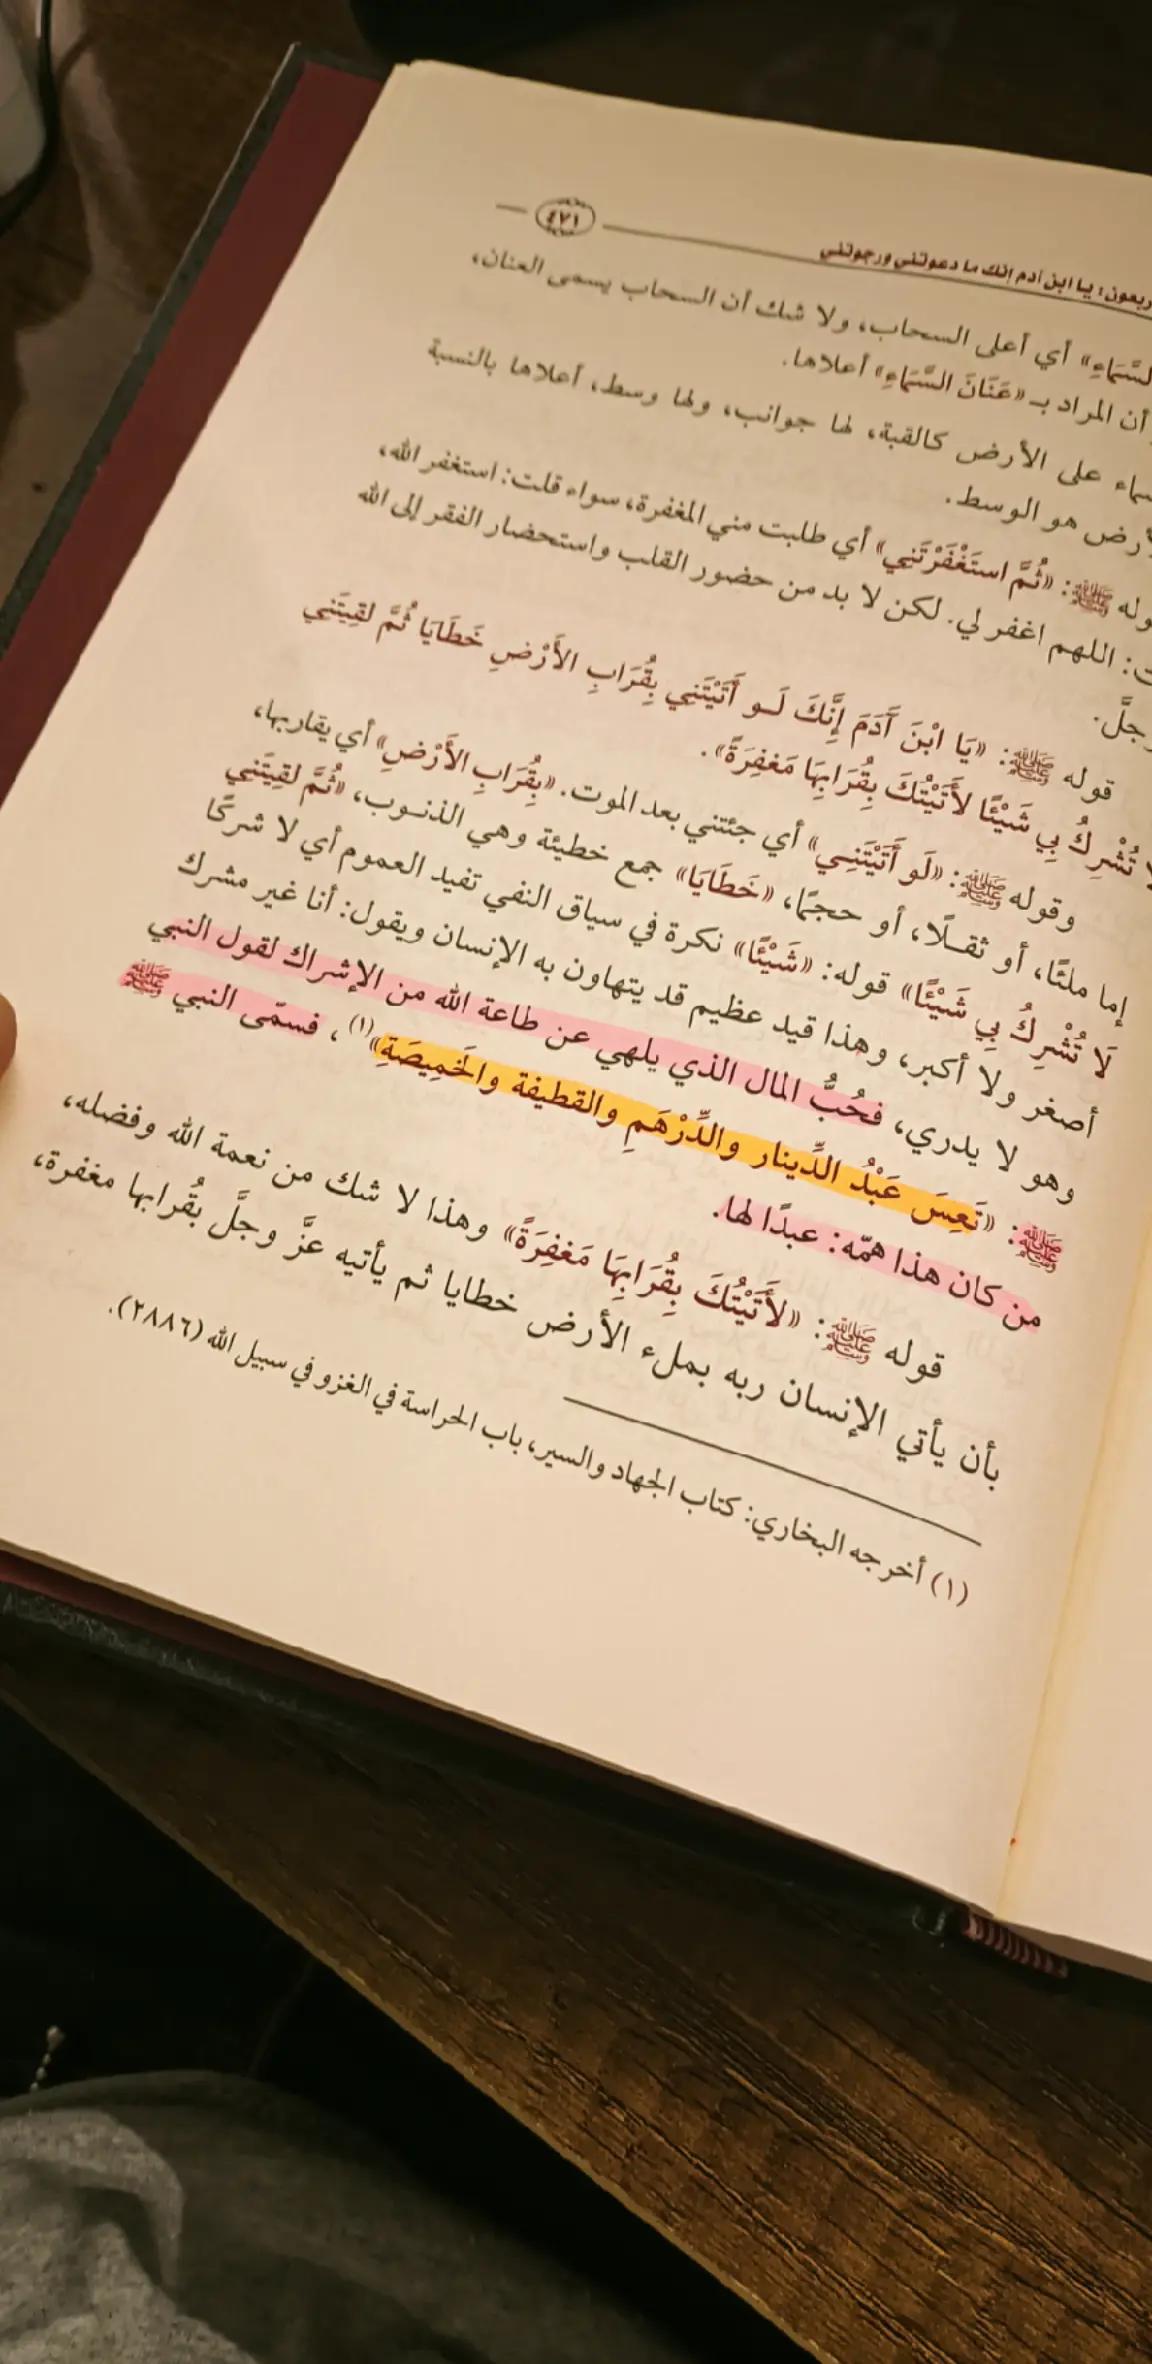 ربعون: يا ابن آدم إنك ما دعوتني ورجوتني ٤٧١
السَّمَاءِ» أي أعلى السحاب، ولا شك أن السحاب يسمى العنان،
أن المراد بـ «عَنَانَ السَّمَاءِ» أعلاها.
ماء على الأرض كالقبة، لها جوانب، ولها وسط، أعلاها بالنسبة
لأرض هو الوسط.
وله ﷺ: «ثُمَّ استَغْفَرْتَني» أي طلبت مني المغفرة، سواء قلت: استغفر الله،
ت: اللهم اغفر لي. لكن لا بد من حضور القلب واستحضار الفقر إلى الله
وجلَّ.
قوله ﷺ: «يَا ابْنَ آدَمَ إِنَّكَ لَـو أَتَيْتَنِي بِقُرَابِ الأَرْضِ خَطَايَا ثُمَّ لقِيَتَني
لا تُشْرِكُ بِي شَيْئًا لأَتَيْتُكَ بِقُرَابِهَا مَغفِرَةً».
وقوله ﷺ: «لَو أَتَيْتَنِـي» أي جئتني بعد الموت. «بِقُرَابِ الأَرْضِ» أي يقاربها،
إما ملئًا، أو ثقـلًا، أو حجمًا، «خَطَايَا» جمع خطيئة وهي الذنـوب، «ثُمَّ لقِيتَني
لَا تُشْرِكُ بِي شَيْئًا» قوله: «شَيْئًا» نكرة في سياق النفي تفيد العموم أي لا شركًا
أصغر ولا أكبر، وهذا قيد عظيم قد يتهاون به الإنسان ويقول: أنا غير مشرك
وهو لا يدري، فحُبُّ المال الذي يلهي عن طاعة الله من الإشراك لقول النبي
ﷺ: «تَعِسَ عَبْدُ الدِّينار والدِّرْهَمِ والقطيفة والخَمِيصَةِ»(١)، فسمّى النبي ﷺ
من كان هذا همّه: عبدًا لها.
قوله ﷺ: «لأَتَيْتُكَ بِقُرَابِهَا مَغفِرَةً» وهذا لا شك من نعمة الله وفضله،
بأن يأتي الإنسان ربه بملء الأرض خطايا ثم يأتيه عزَّ وجلَّ بقُرابها مغفرة،
(١) أخرجه البخاري: كتاب الجهاد والسير، باب الحراسة في الغزو في سبيل الله (٢٨٨٦).